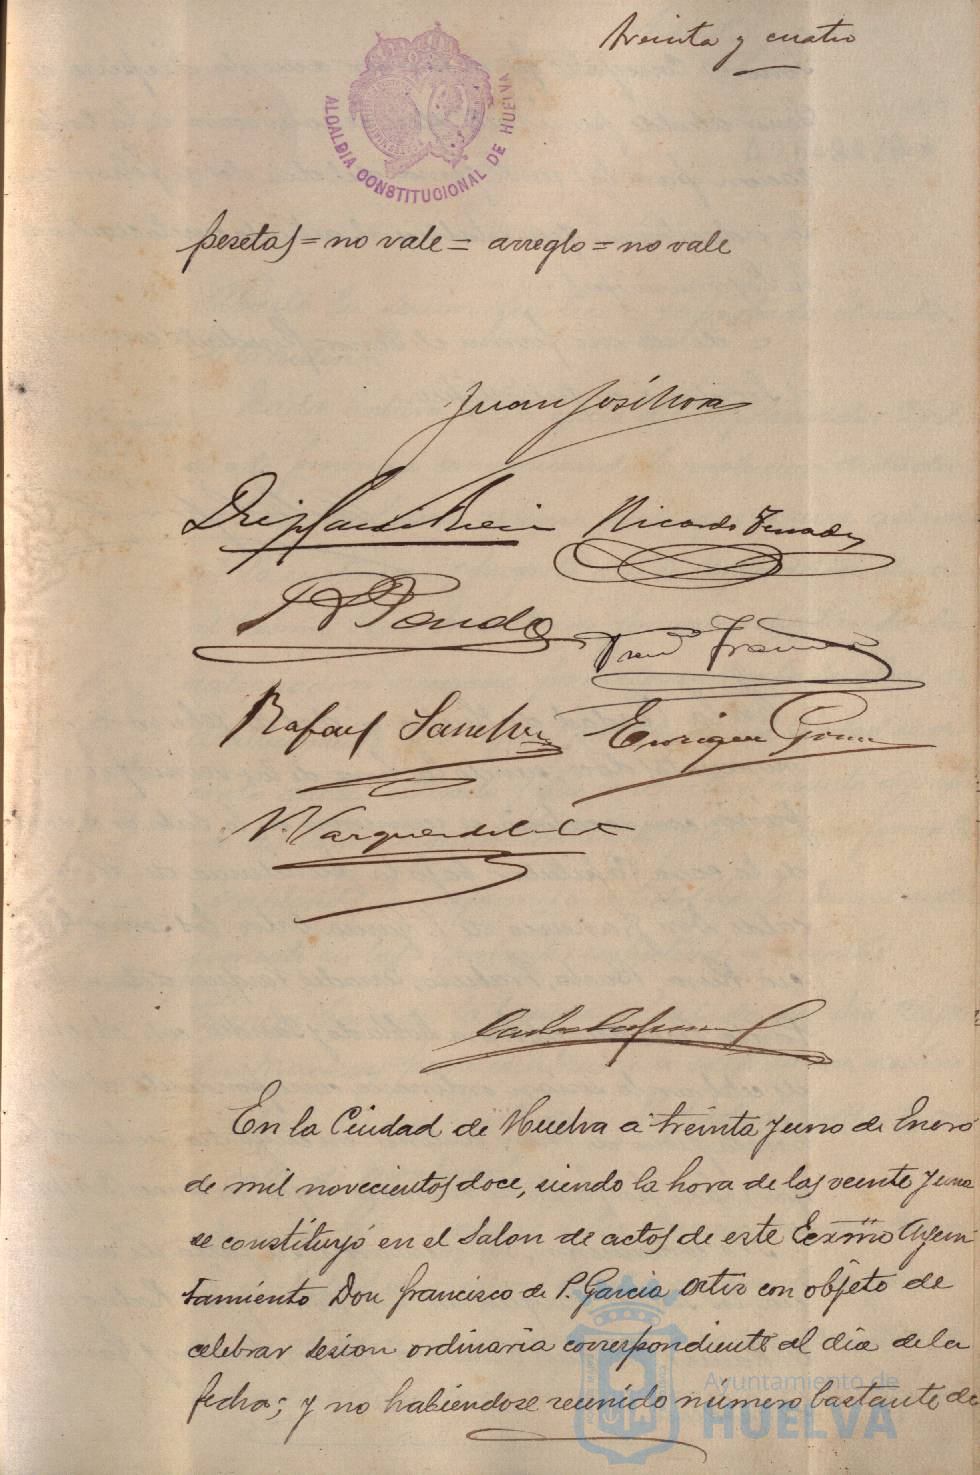 treinta y cuatro
ALCALDIA CONSTITUCIONAL DE HUELVA
pesetas = no vale = arreglo = no vale
Juan José Mora
Ricardo Terrades
Rafael Sanchez Enrique
V. Vazquez de la
En la Ciudad de Huelva a treinta y uno de Enero
de mil novecientos doce, siendo la hora de las veinte y una
se constituyó en el Salon de actos de este Excmo Ayun
tamiento Don Francisco de P. Garcia Ortiz con objeto de
celebrar sesion ordinaria correspondiente al dia de la
fecha; y no habiendose reunido número bastante de
Ayuntamiento de
HUELVA